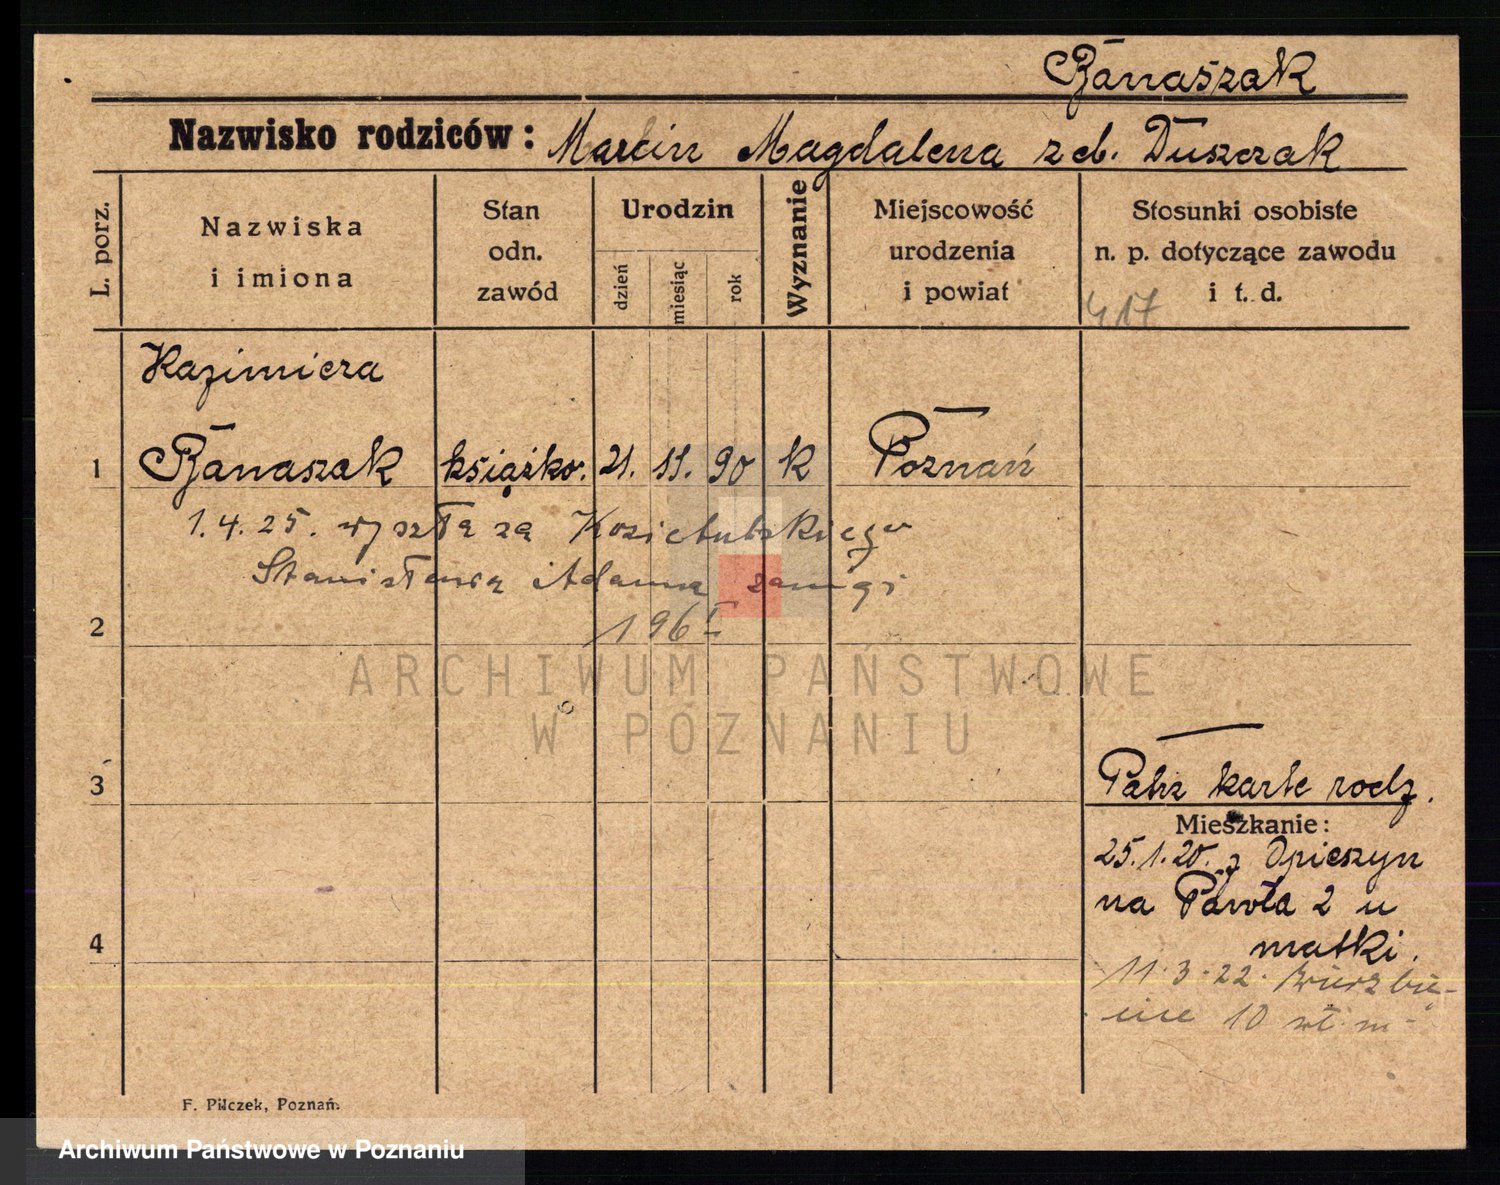 Banaszak
Nazwisko rodziców: Marcin Magdalena z d. Duszczak
L. porz.
Nazwiska i imiona
Stan odn. zawód
Urodzin
dzień
miesiąc
rok
Wyznanie
Miejscowość urodzenia i powiat
Stosunki osobiste n. p. dotyczące zawodu i t. d.
417
Kazimiera
1 Banaszak książko. 21. 11. 90 k Poznań
1.4.25. wyszła za Kozietulskiego
Stanisława Adama
196
2
ARCHIWUM PAŃSTWOWE
W POZNANIU
3
Patrz karte rodz.
Mieszkanie:
25.1.20. z Opieszyn
na Pawła 2 u
matki.
4
11.3.22. Wierzbię-
cice 10 wł. m
F. Pilczek, Poznań.
Archiwum Państwowe w Poznaniu